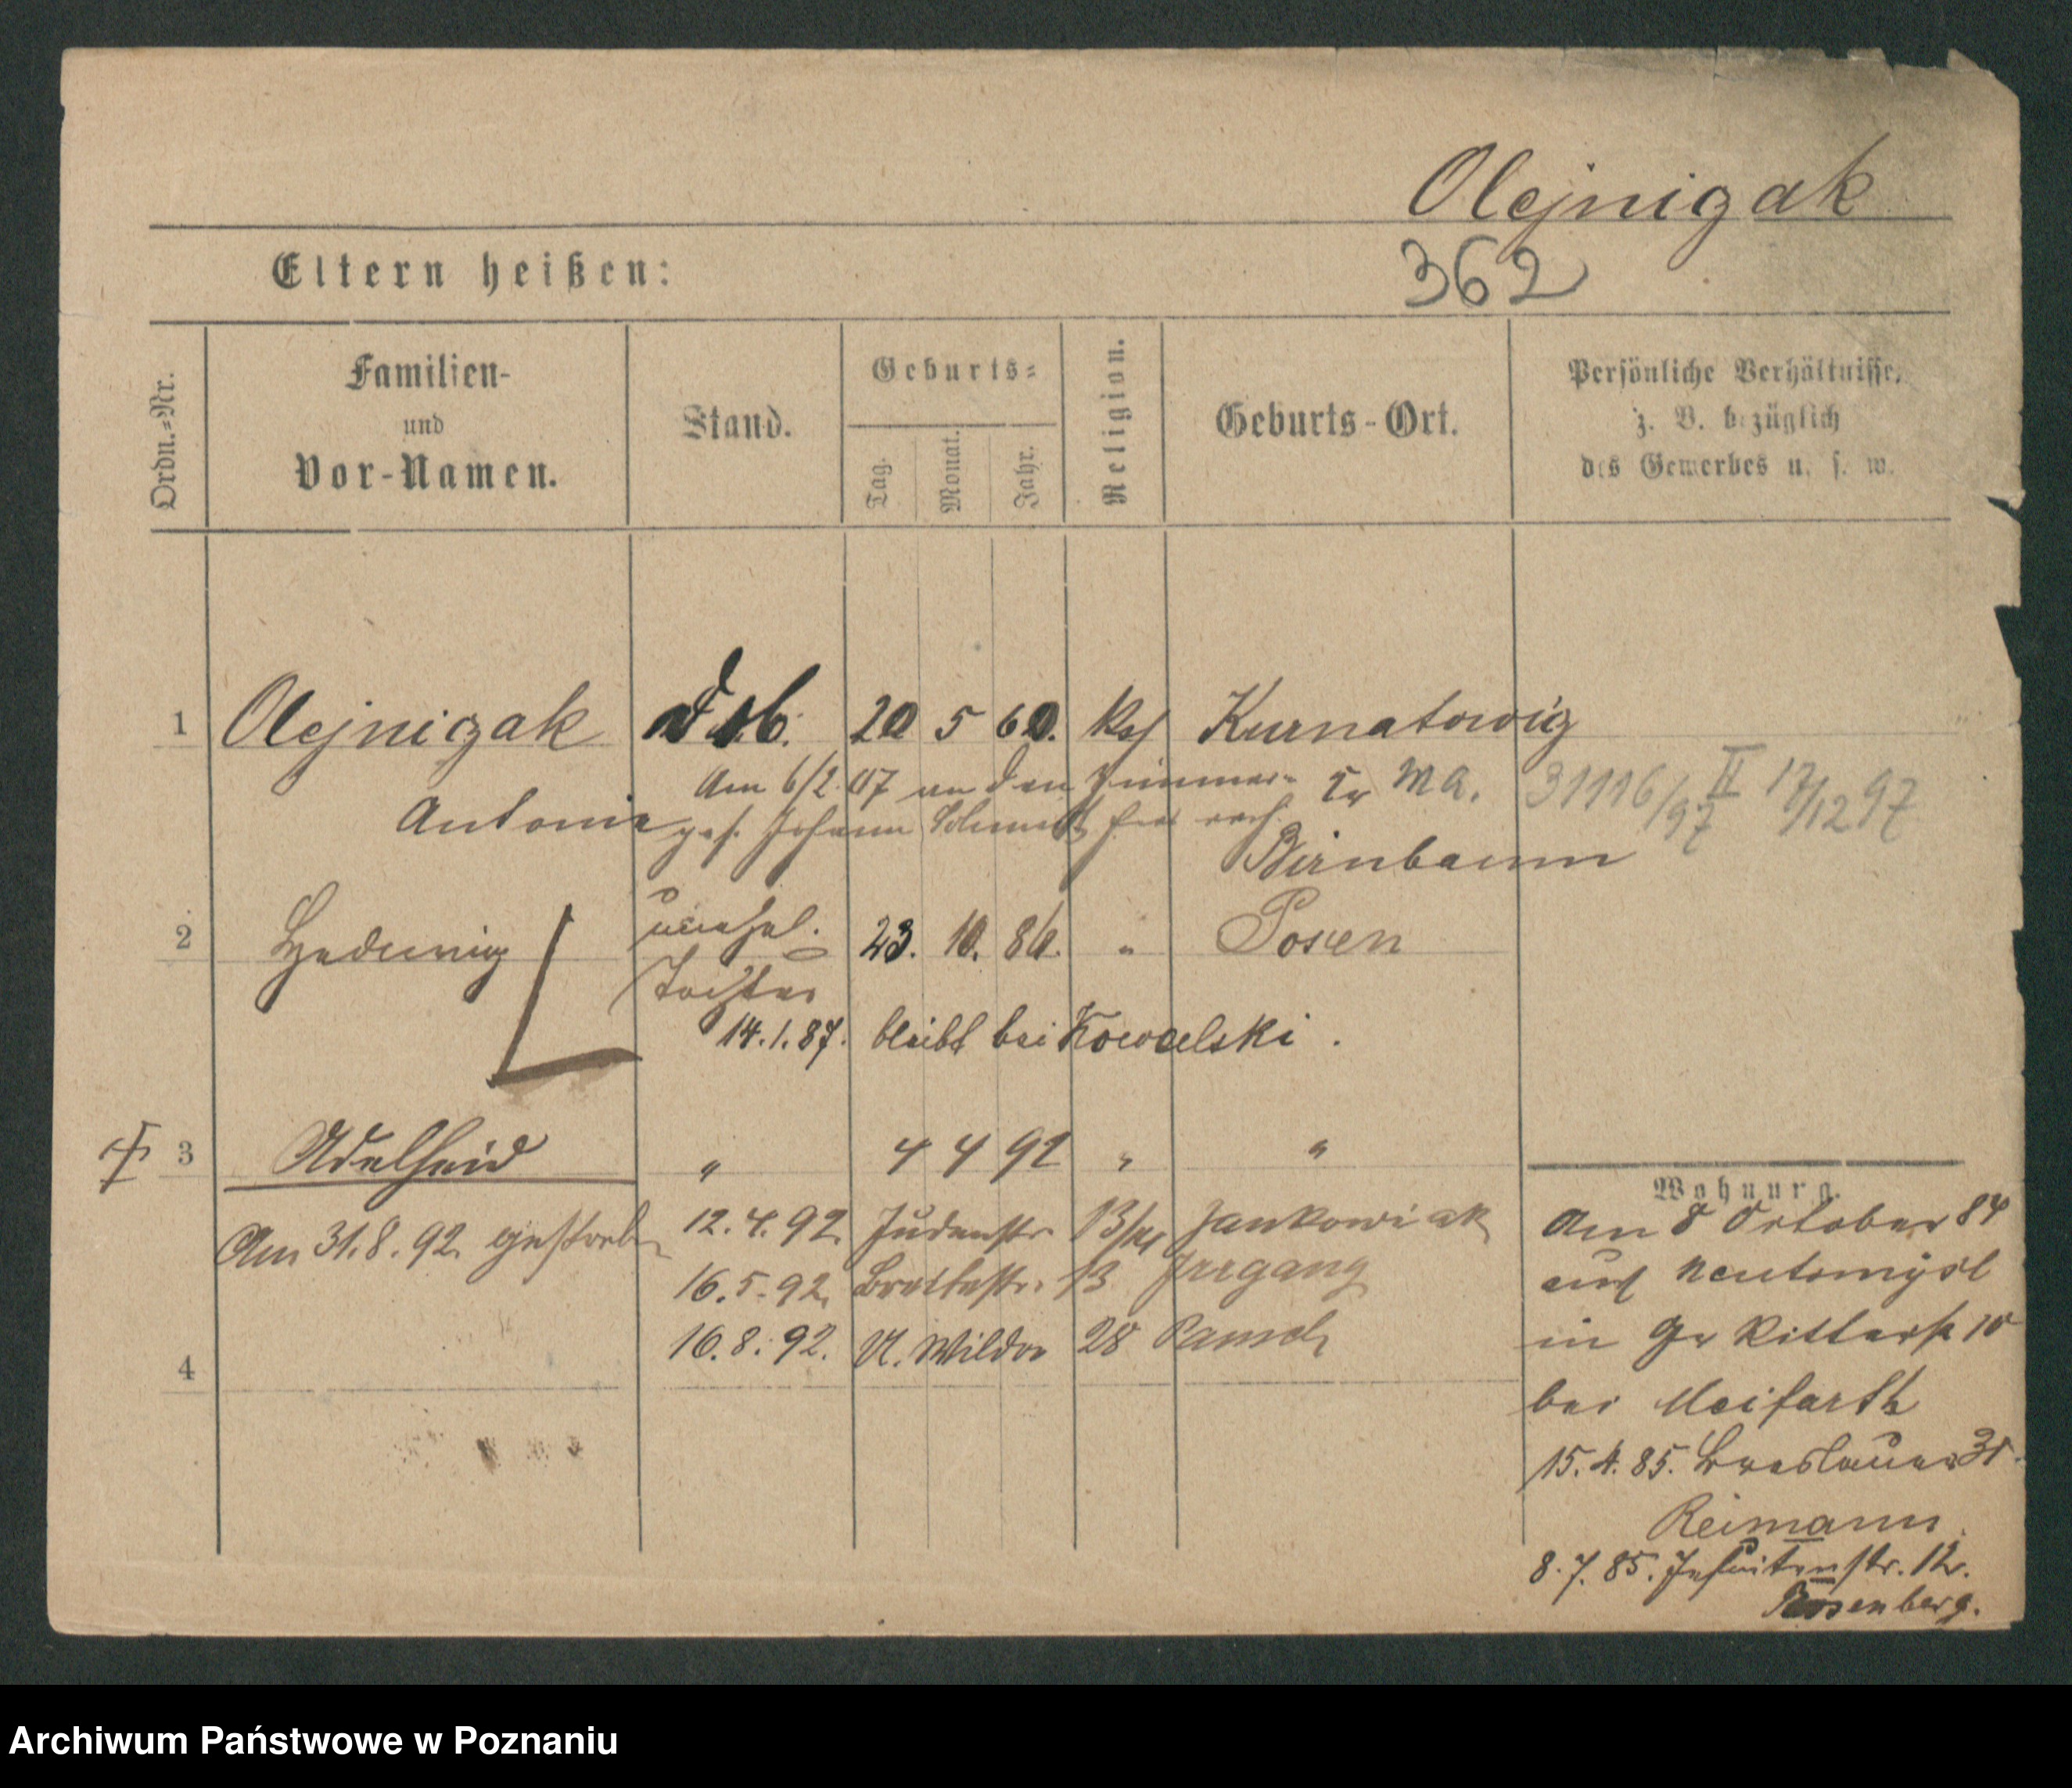 Olejnigak
Eltern heißen:
362
Ordn.=Nr.
Familien-
und
Vor-Namen.
Stand.
Geburts=
Tag.
Monat.
Jahr.
Religion.
Geburts-Ort.
Persönliche Verhältnisse,
z. B. bezüglich
des Gewerbes u. s. w.
1 Olejnigak 20 5 60. Kurnatowig
Am 6/2. 07 an den Zimmer= Kr Ma. 31116/97 II 17/12 97
Antonie ges. Johann Schmidt
Birnbaum
2 Hedwig unehel. 23. 10. 86. " Posen
Tochter
14.1.87. bleibt bei Kowalski.
3 Adelheid " 4 4 92 " "
Am 31.8.92. gestorben
12.4.92. Judenstr 13/14 Jankowiak
16.5.92. Breitestr. 13 Irrgang
16.8.92. U. Wilda 28
4
Wohnung.
Am 8 October 84
aus Neutomysl
in Gr Ritterst 10
bei Meifarth
15.4.85. Breslauer 31.
Reimann.
8.7.85. Jesuitenstr. 12.
Rosenberg.
Archiwum Państwowe w Poznaniu